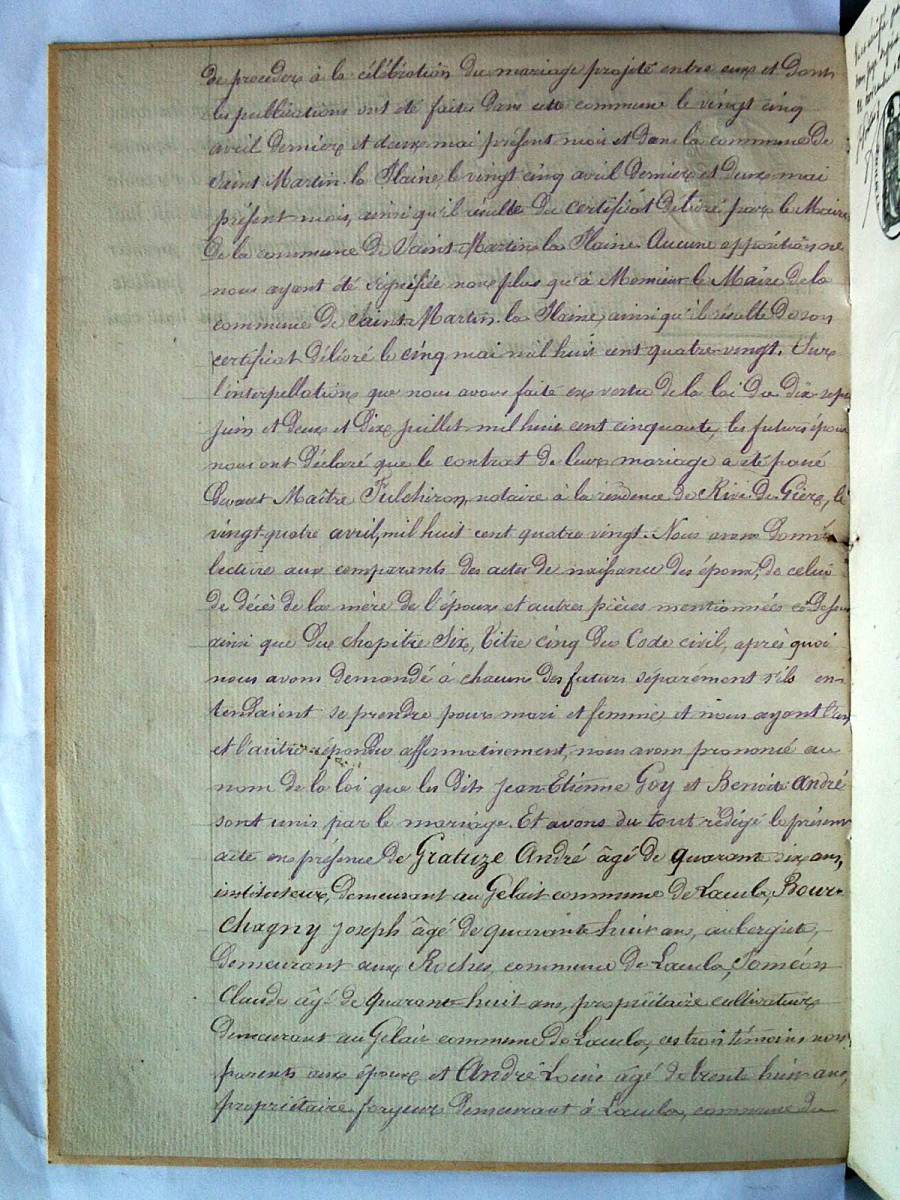 de procéder à la célébration du mariage projeté entre eux et dont
les publications ont été faites dans cette commune le vingt cinq
avril dernier et deux mai présent mois et dans la commune de
Saint Martin la Plaine, le vingt cinq avril dernier et deux mai
présent mois, ainsi qu'il résulte du certificat délivré par le Maire
de la commune de Saint Martin la Plaine. Aucune opposition ne
nous ayant été signifiée non plus qu'à Monsieur le Maire de la
commune de Saint-Martin-la Plaine, ainsi qu'il résulte de son
certificat délivré le cinq mai mil huit cent quatre-vingt. Sur
l'interpellation que nous avons faite en vertu de la loi du dix-sept
juin et deux et dix juillet mil huit cent cinquante, les futurs époux
nous ont déclaré que le contrat de leur mariage a été passé
devant Maître Fulchiron, notaire à la résidence de Rive-de-Gière, le
vingt-quatre avril, mil huit cent quatre vingt. Nous avons donné
lecture aux comparants des actes de naissance des époux, de celui
de décès de la mère de l'époux et autres pièces mentionnées ci-dessus
ainsi que du chapitre Six, titre cinq du Code civil, après quoi
nous avons demandé à chacun des futurs séparément s'ils en-
tendaient se prendre pour mari et femme, et nous ayant l'un
et l'autre répondu affirmativement, nous avons prononcé au
nom de la loi que les dits Jean-Etienne Goy et Benoîte André
sont unis par le mariage. Et avons du tout rédigé le présent
acte en présence de Gratuze André âgé de quarante six ans,
instituteur, demeurant au Gelait commune de Laula, Bour-
chagny Joseph âgé de quarante-huit ans, aubergiste,
demeurant aux Roches, commune de Laula,
Claude âgé de quarante-huit ans, propriétaire cultivateur
demeurant au Gelait commune de Laula, ces trois témoins non
parents aux époux et André Louis âgé de trente huit ans,
propriétaire forgeur demeurant à Laula, commune du